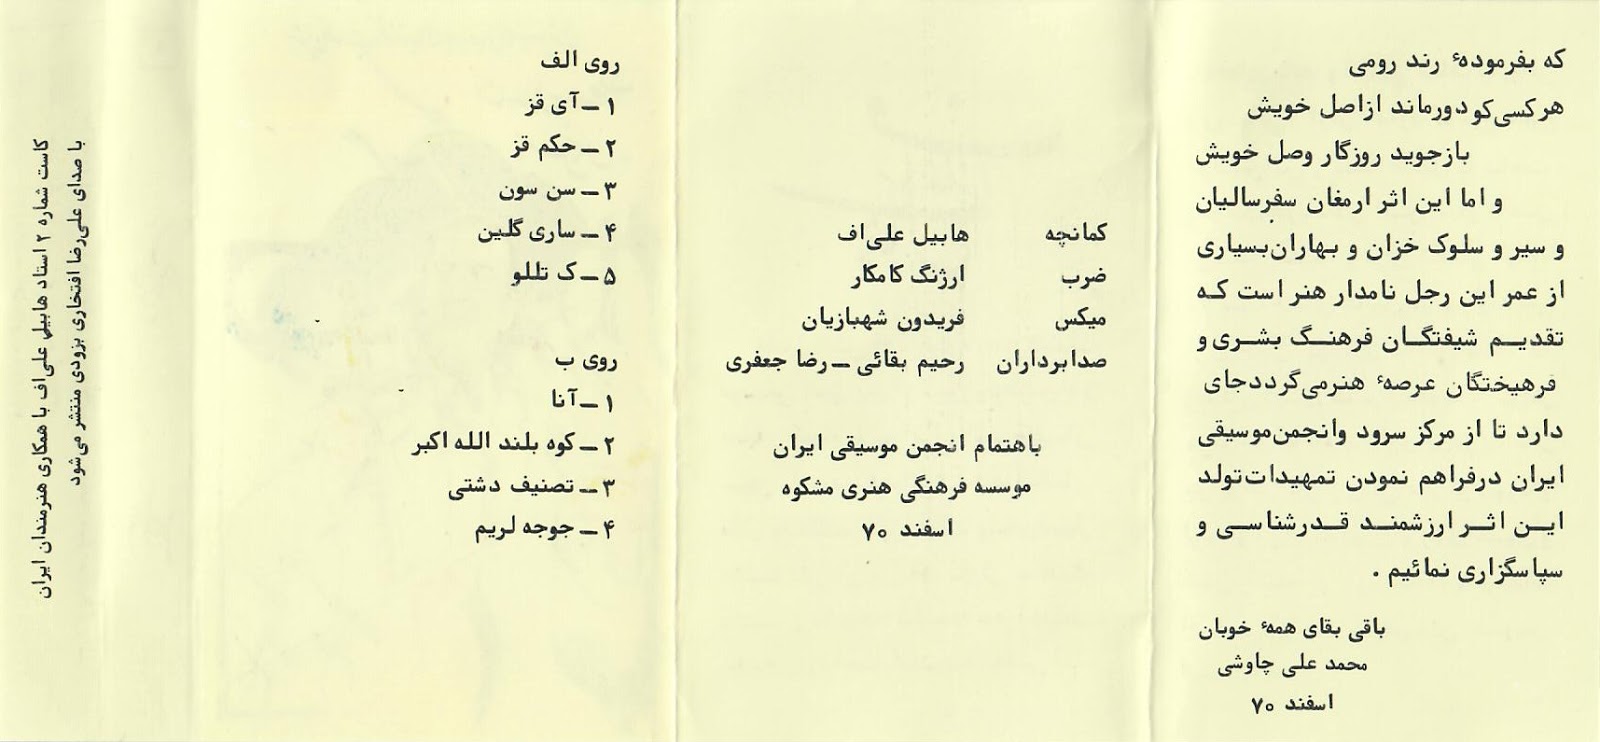 که بفرمودهٔ رند رومی
هرکسی‌کو دورماند ازاصل خویش
بازجوید روزگار وصل خویش
و اما این اثر ارمغان سفرسالیان
و سیر و سلوک خزان و بهاران‌بسیاری
از عمر این رجل نامدار هنر است که
تقدیم شیفتگان فرهنگ بشری و
فرهیختگان عرصهٔ هنرمی‌گرددجای
دارد تا از مرکز سرود وانجمن‌موسیقی
ایران درفراهم نمودن تمهیدات‌تولد
این اثر ارزشمند قدرشناسی و
سپاسگزاری نمائیم .
باقی بقای همهٔ خوبان
محمد علی چاوشی
اسفند ۷۰
کمانچه هابیل علی‌اف
ضرب ارژنگ کامکار
میکس فریدون شهبازیان
صدابرداران رحیم بقائی ــ رضا جعفری
باهتمام انجمن موسیقی ایران
موسسه فرهنگی هنری مشکوه
اسفند ۷۰
روی الف
۱ ــ آی قز
۲ ــ حکم قز
۳ ــ سن سون
۴ ــ ساری گلین
۵ ــ ک تللو
روی ب
۱ ــ آنا
۲ ــ کوه بلند الله اکبر
۳ ــ تصنیف دشتی
۴ ــ جوجه لریم
کاست شماره ۲ استاد هابیل علی‌اف با همکاری هنرمندان ایران
با صدای علی‌رضا افتخاری بزودی منتشر می‌شود